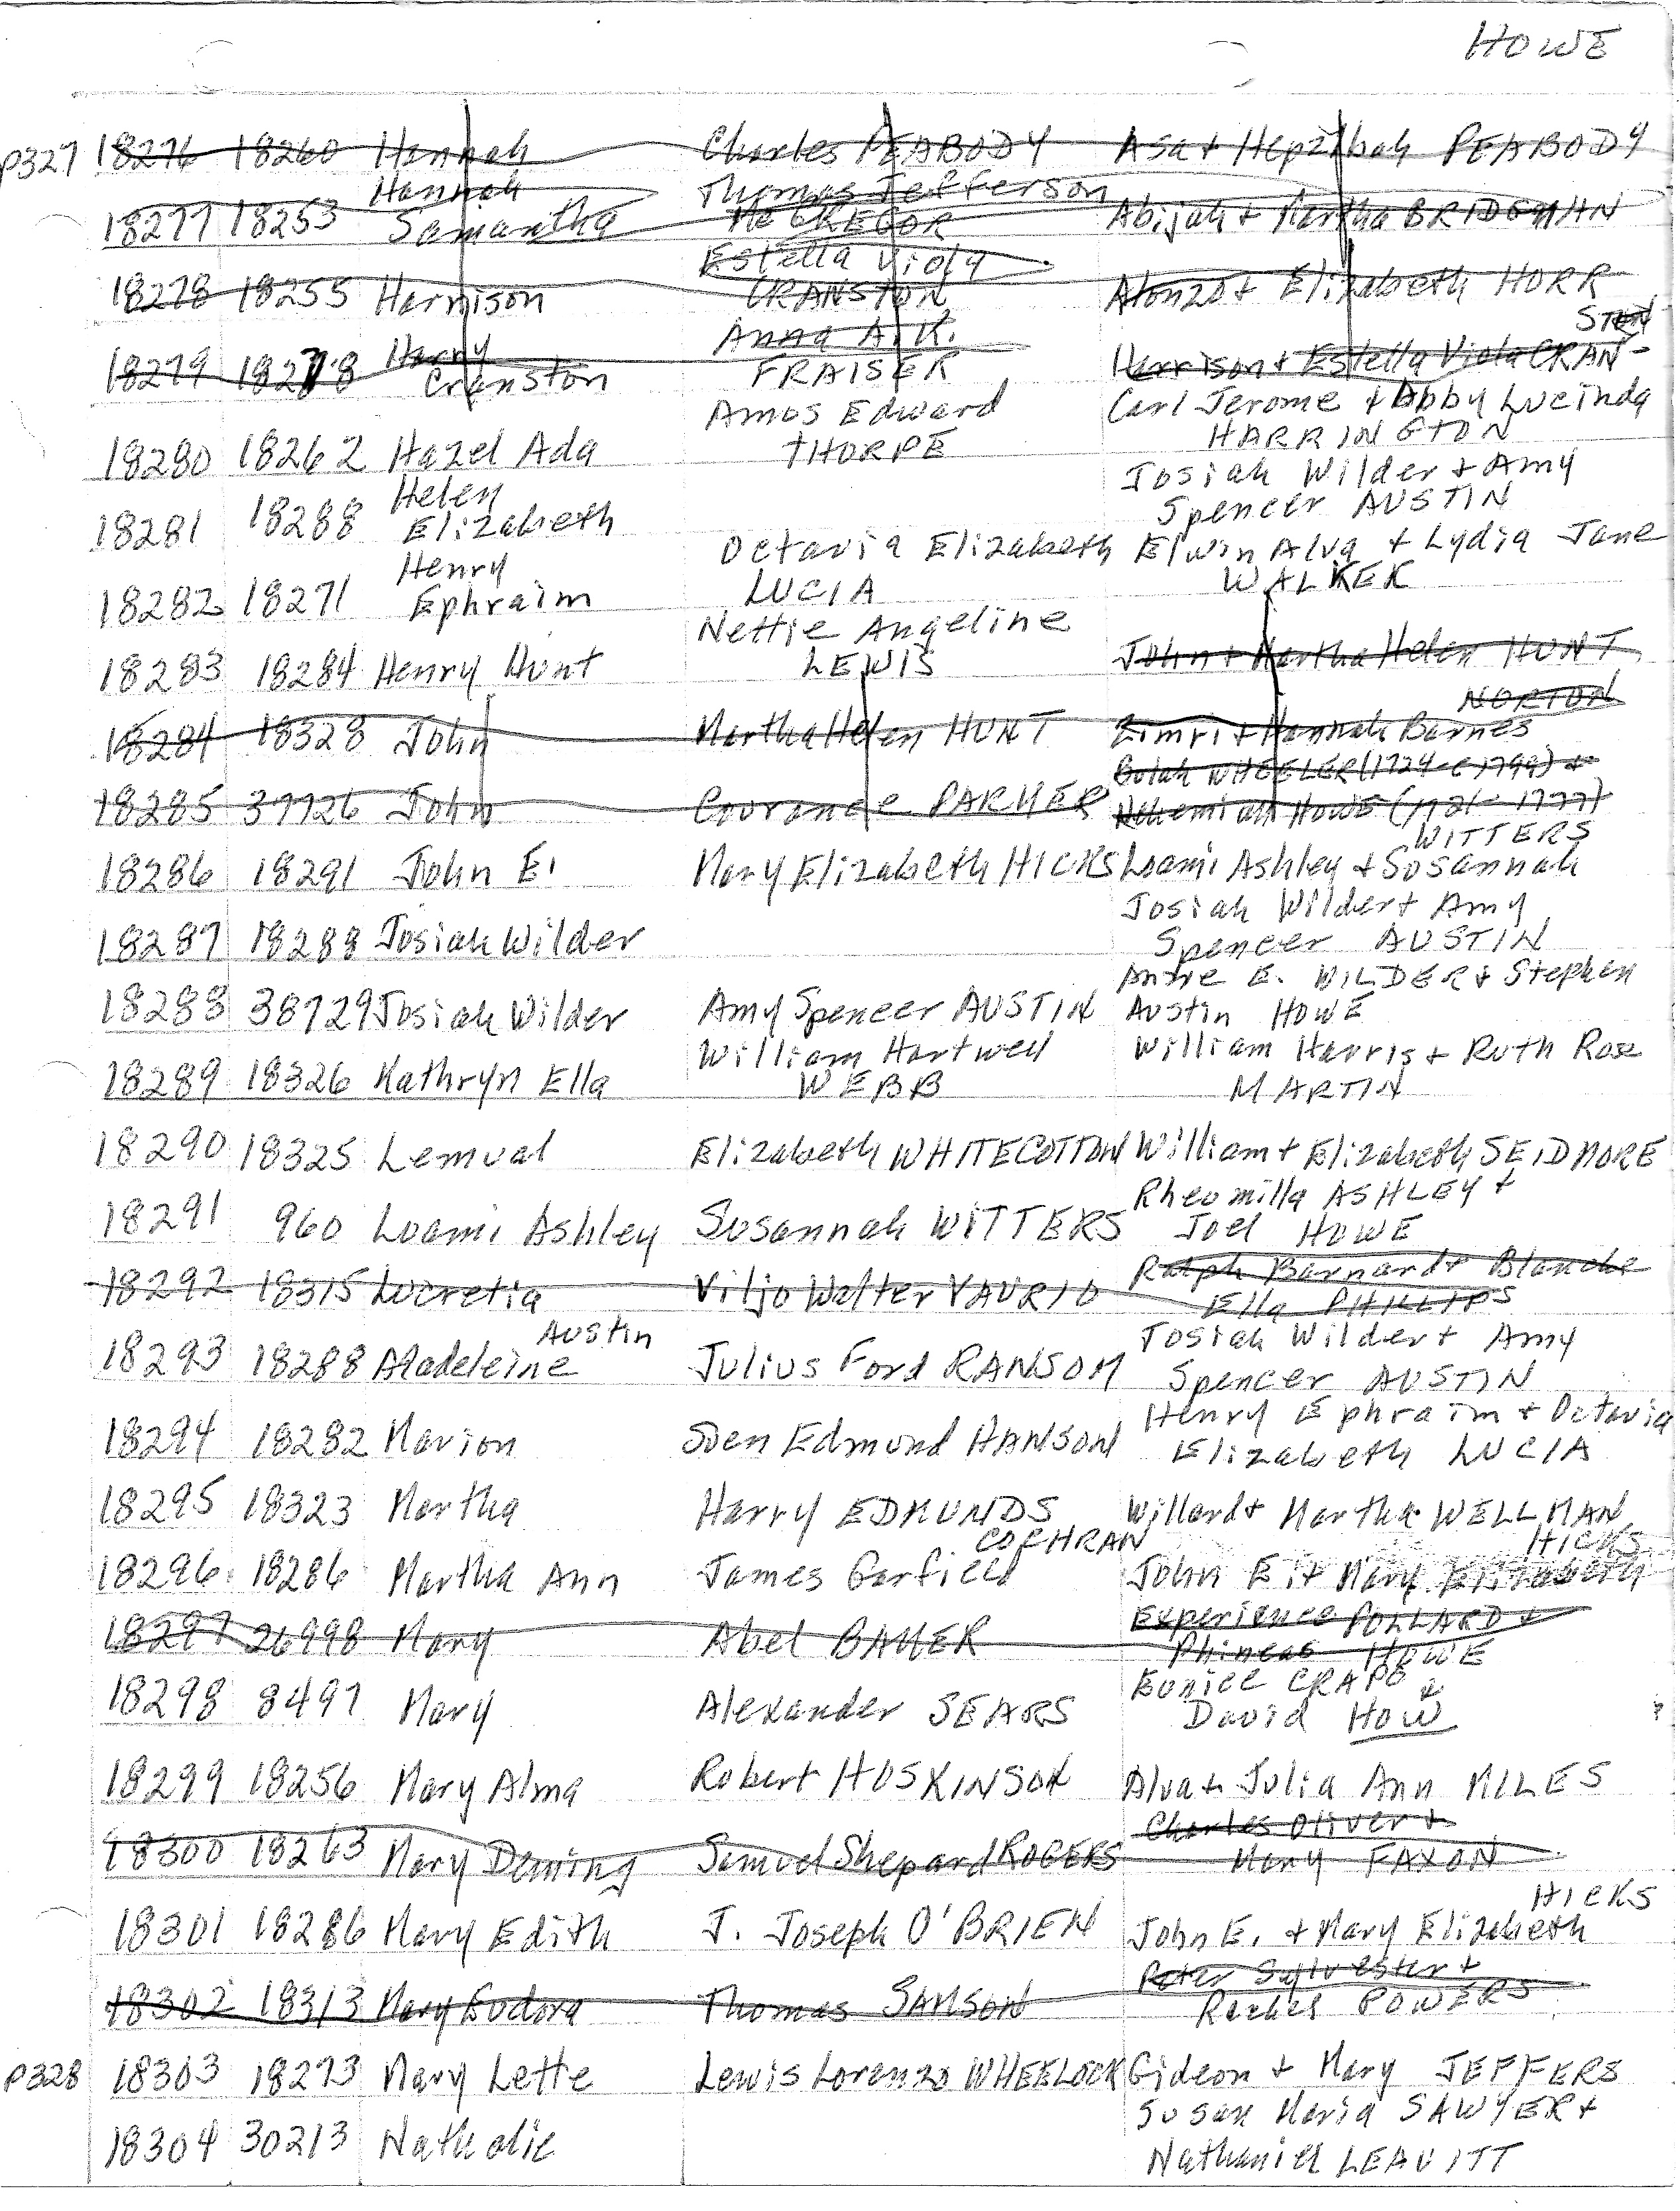 HOWE
P327 18276 18260 Hannah Charles PEABODY Asa + Hepzibah PEABODY
Hannah Thomas Jefferson
18277 18253 Samantha McGREGOR Abijah + Martha BRIDGMAN
Estella Viola
18278 18255 Harrison CRANSTON Alonzo + Elizabeth HORR
Harry Anna A.K. STON
18279 18278 Cranston FRAISER Harrison + Estella Viola CRAN-
Amos Edward Carl Jerome + Abby Lucinda
18280 18262 Hazel Ada THORPE HARRINGTON
Helen Josiah Wilder + Amy
18281 18288 Elizabeth Spencer AUSTIN
Henry Octavia Elizabeth Elwin Alva + Lydia Jane
18282 18271 Ephraim LUCIA WALKER
Nettie Angeline
18283 18284 Henry Hunt LEWIS John + Martha Helen HUNT
NORTON
18284 18328 John Martha Helen HUNT Zimri + Hannah Barnes
Bulah WHEELER (1724-c1799) +
18285 37726 John Courance PARMER Nehemiah Howe (1721-1777)
WITTERS
18286 18291 John E. Mary Elizabeth HICKS Loami Ashley + Susannah
Josiah Wilder + Amy
18287 18288 Josiah Wilder Spencer AUSTIN
Anne E. WILDER + Stephen
18288 38729 Josiah Wilder Amy Spencer AUSTIN Austin HOWE
William Hartwell William Harris + Ruth Rose
18289 18326 Kathryn Ella WEBB MARTIN
18290 18325 Lemual Elizabeth WHITECOTTON William + Elizabeth SEIDMORE
Rheomilla ASHLEY +
18291 960 Loami Ashley Susannah WITTERS Joel HOWE
Ralph Barnard + Blanche
18292 18315 Lucretia Viljo Walter VAURIO Ella PHILLIPS
Austin Josiah Wilder + Amy
18293 18288 Madeleine Julius Ford RANSOM Spencer AUSTIN
Henry Ephraim + Octavia
18294 18282 Marion Sven Edmund HANSON Elizabeth LUCIA
18295 18323 Martha Harry EDMUNDS Willard + Martha WELLMAN
COCHRAN HICKS
18296 18286 Martha Ann James Garfield John E. + Mary Elizabeth
Experience POLLARD +
18297 26998 Mary Abel BAKER Phineas HOWE
Eunice CRAPO +
18298 8497 Mary Alexander SEARS David HOW
18299 18256 Mary Alma Robert HOSKINSON Alva + Julia Ann MILES
Charles Oliver +
18300 18263 Mary Deming Samuel Shepard ROGERS Mary FAXON
HICKS
18301 18286 Mary Edith J. Joseph O'BRIEN John E. + Mary Elizabeth
Peter Sylvester +
18302 18313 Mary Eudora Thomas SAMSON Rachel POWERS
P328 18303 18273 Mary Lette Lewis Lorenzo WHEELOCK Gideon + Mary JEFFERS
Susan Maria SAWYER +
18304 30213 Nathalie Nathaniel LEAVITT